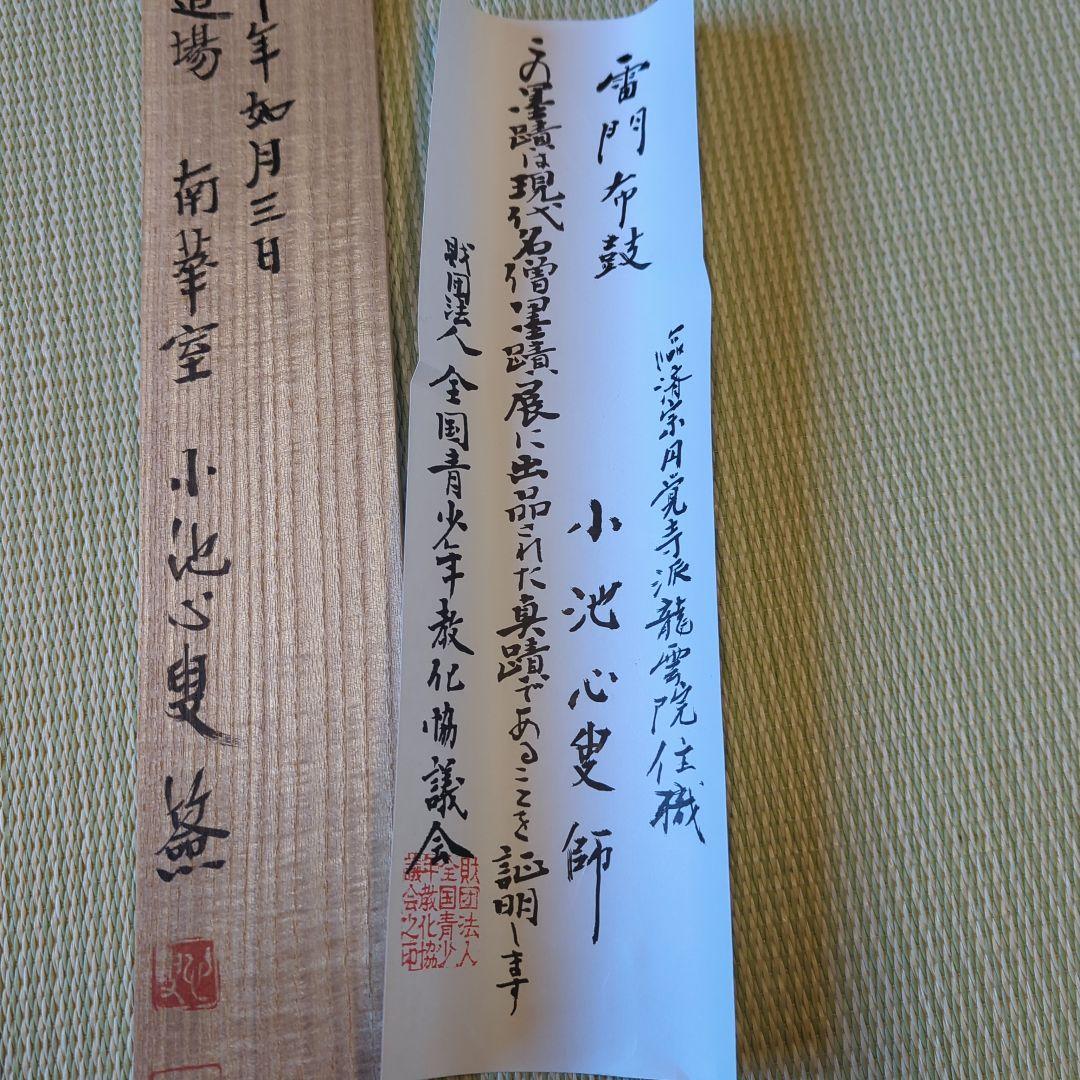 雷門布鼓
臨済宗円覚寺派龍雲院住職
小池心叟師
この墨蹟は現代名僧墨蹟展に出品された真蹟であることを証明します
財団法人全国青少年教化協議会
財団法人
全国青少
年教化協
議会之印
年如月三日
道場 南華室 小池心叟